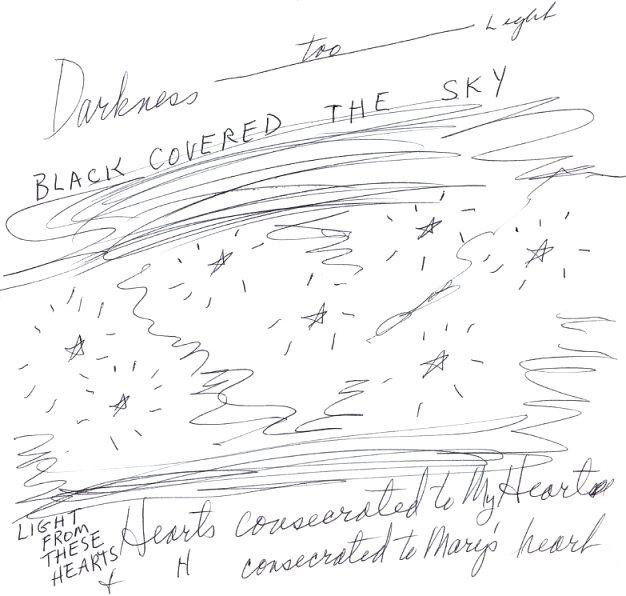 Darkness too Light
BLACK COVERED THE SKY
Hearts consecrated to My Heart
LIGHT
FROM
THESE
HEARTS
+ H consecrated to Mary's heart